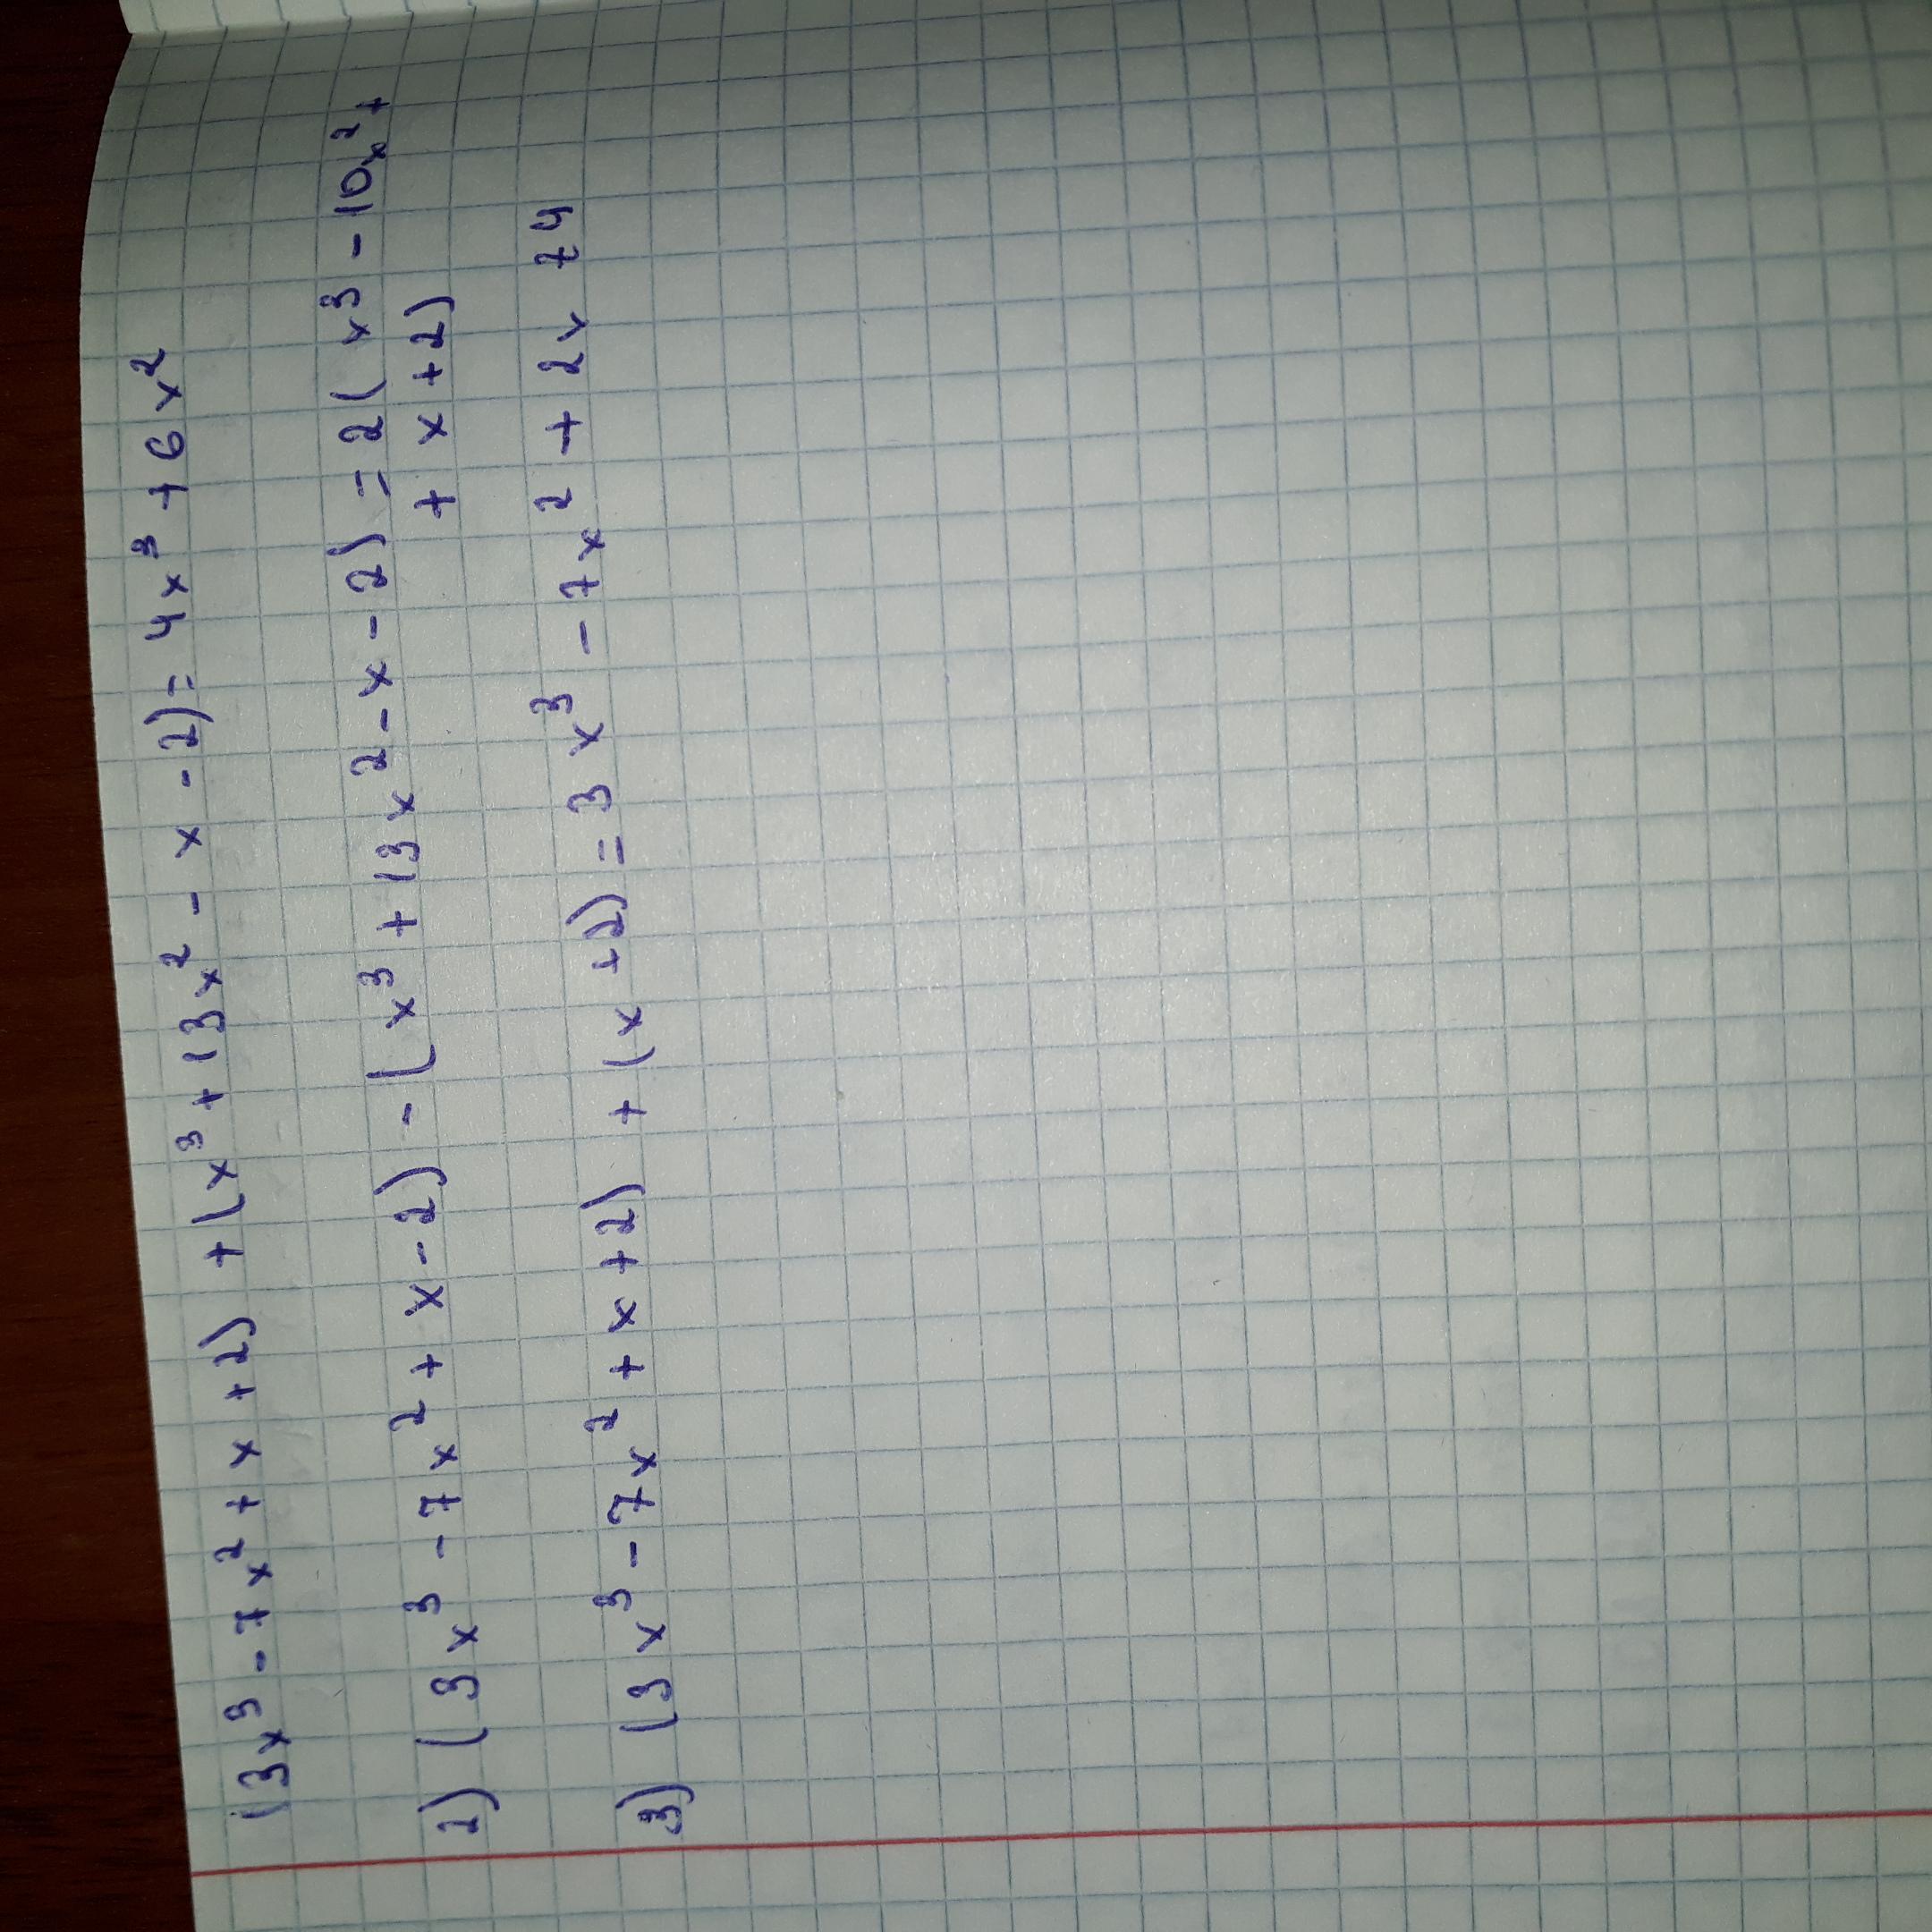 (3x³ - 7x² + x + 2) + (x³ + 13x² - x - 2) = 4x³ + 6x²
2) (3x³ - 7x² + x - 2) - (x³ + 13x² - x - 2) = 2(x³ - 10x² +
+ x + 2)
3) (3x³ - 7x² + x + 2) + (x + 2) = 3x³ - 7x² + 2x + 4